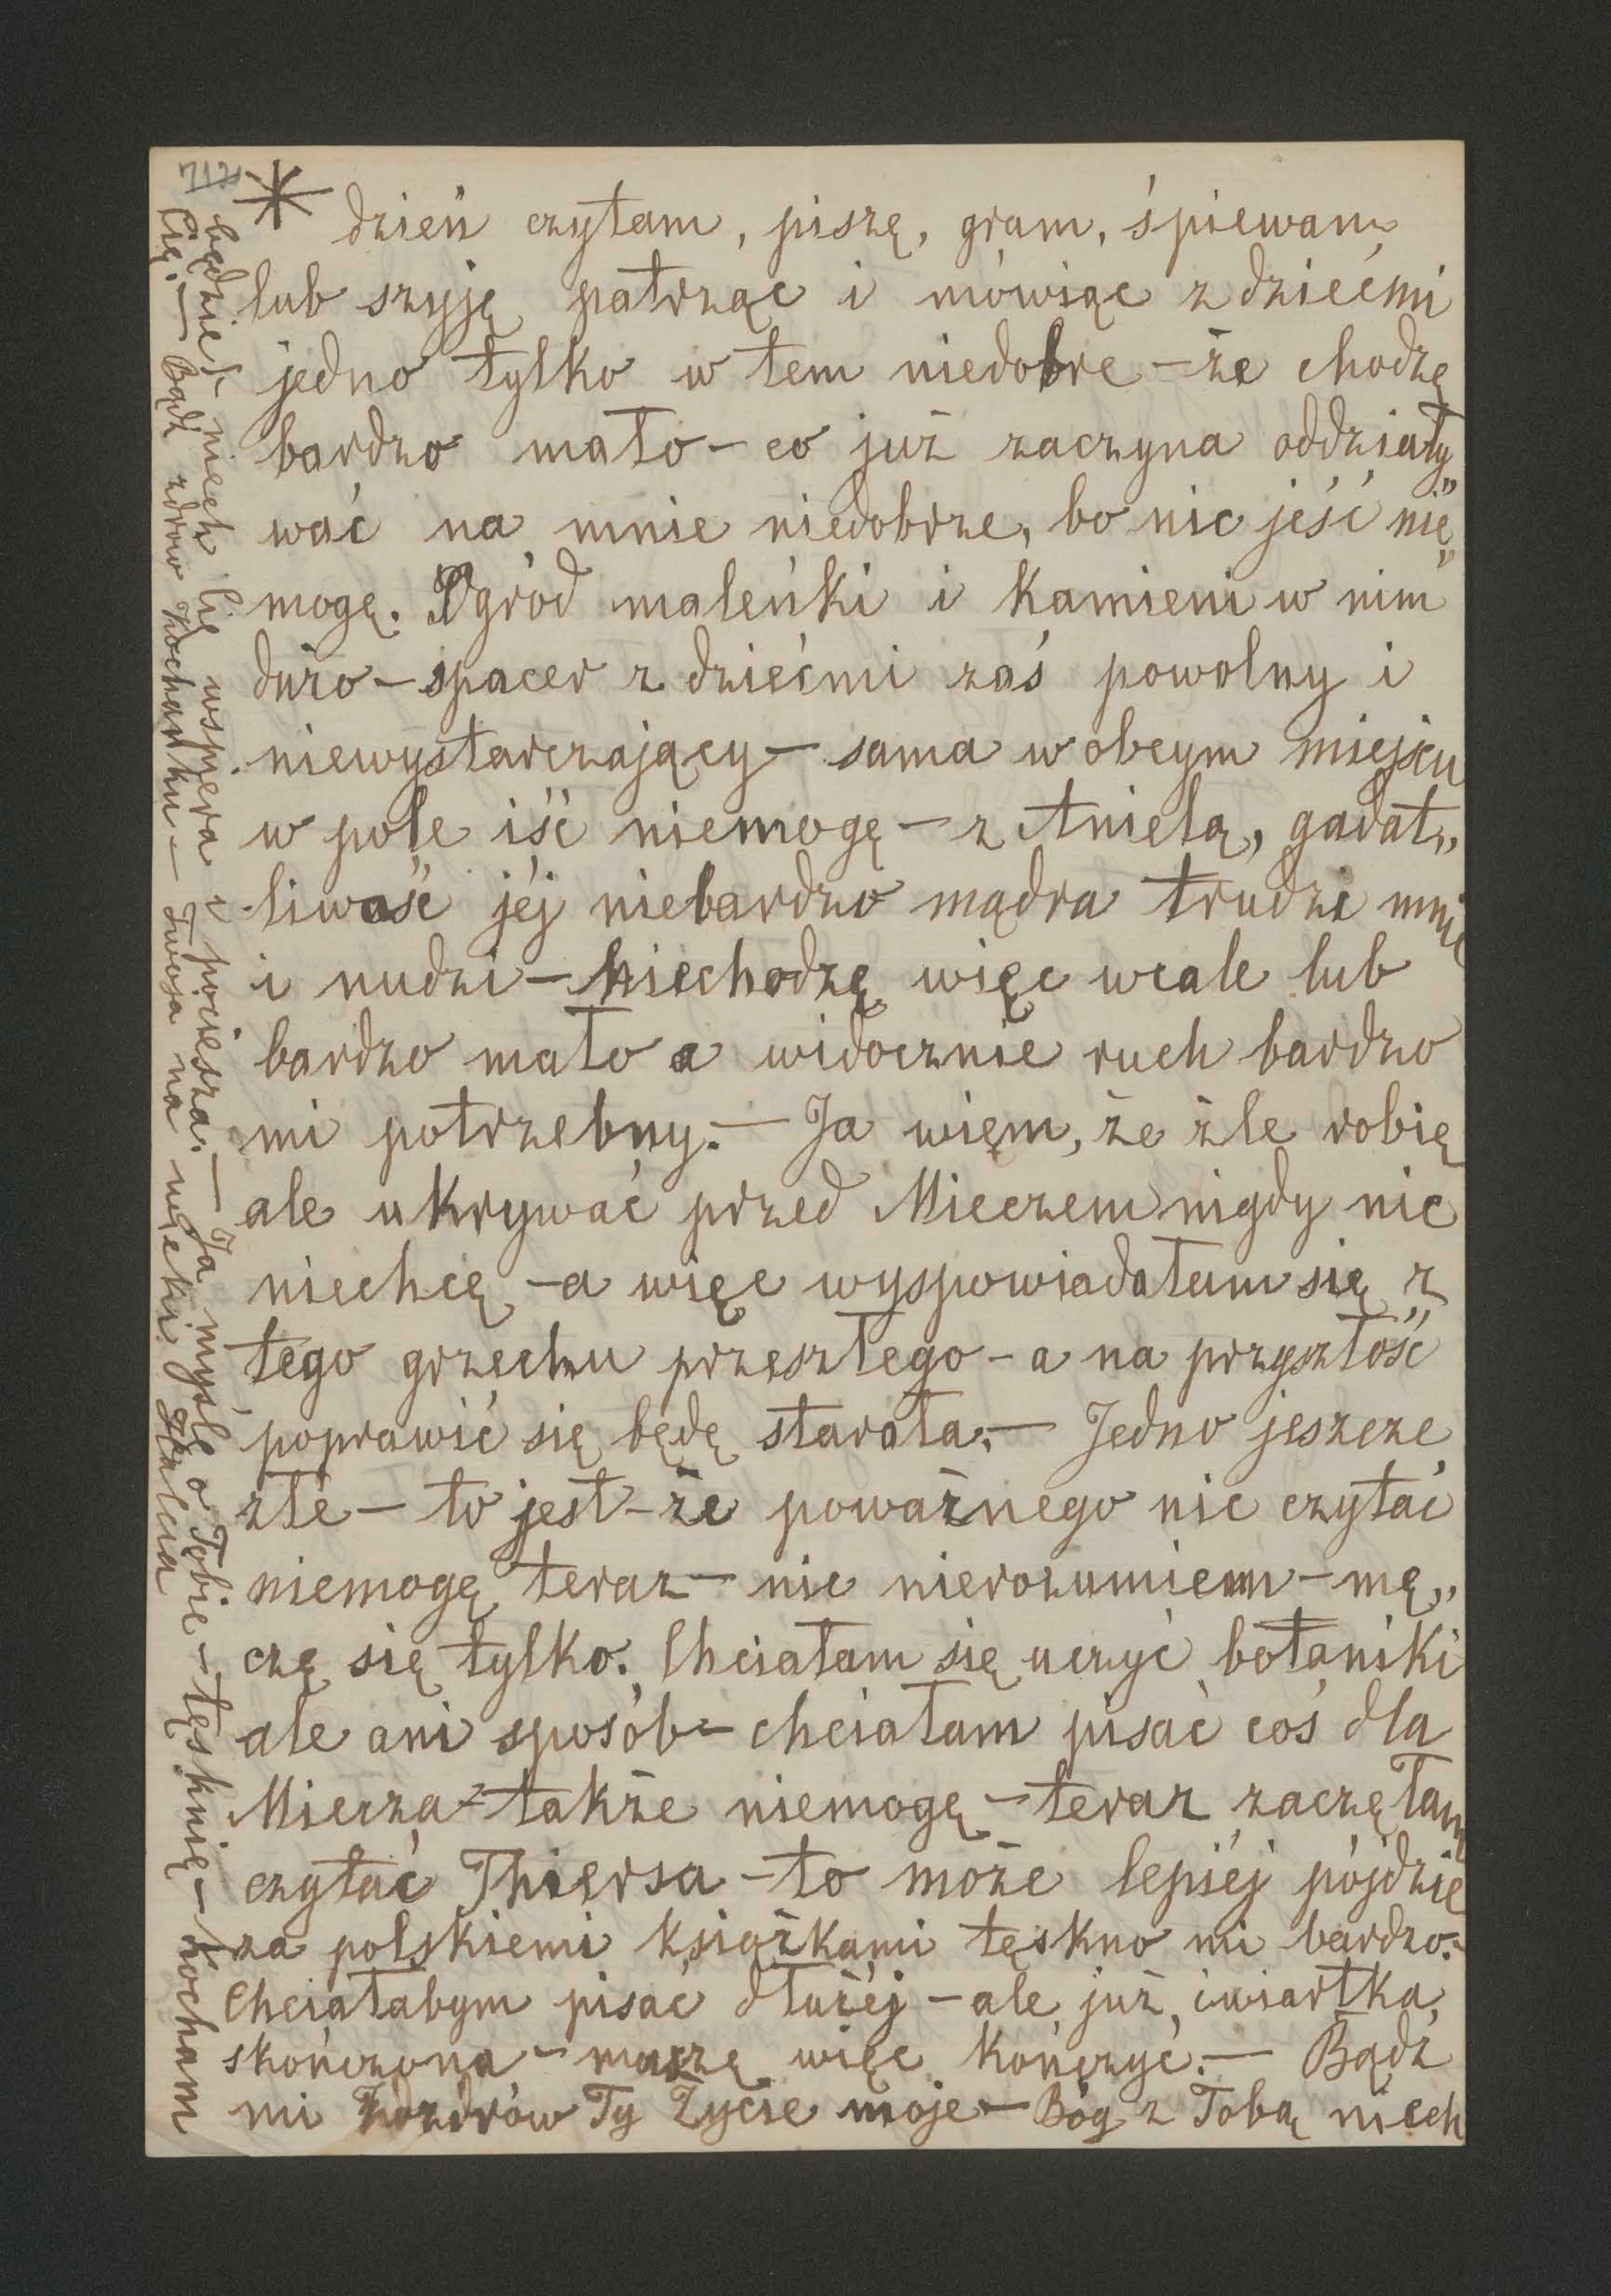 712
* dzień czytam, piszę, gram, śpiewam
lub szyję patrząc i mówiąc z dziećmi
jedno tylko w tem niedobre – że chodzę
bardzo mało – co już zaczyna oddziały„
wać na mnie niedobrze, bo nic jeść nie„
mogę. Ogród maleńki i kamieni w nim
dużo – spacer z dziećmi zaś powolny i
niewystarczający – sama w obcym miejscu
w pole iść niemogę – z Anielą, gadat„
liwość jéj niebardzo mądra trudzi mnie
i nudzi – niechodzę więc wcale lub
bardzo mało a widocznie ruch bardzo
mi potrzebny. – Ja wiem, że źle robię
ale ukrywać przed Mieczem nigdy nic
niechcę – a więc wyspowiadałam się z
tego grzechu przeszłego – a na przyszłość
poprawić się będę starała. – Jedno jeszcze
złe – to jest – że poważnego nic czytać
niemogę teraz – nic nierozumiem – mę„
czę się tylko. Chciałam się uczyć botaniki
ale ani sposób – chciałam pisać coś dla
Miecza – także niemogę – teraz zaczęłam
czytać Thiersa – to może lepiéj pójdzie
za polskiemi książkami tęskno mi bardzo. –
Chciałabym pisać dłużéj – ale już ćwiartka
skończona – muszę więc kończyć. – Bądź
mi zdrów Ty Życie moje – Bóg z Tobą niech
będzie – niech Cię wspiera i pociesza. – Ja myślę o Tobie – tęsknię – kocham
Cię. – Bądź zdrów Kochanku – Twoja na wieki Halcia